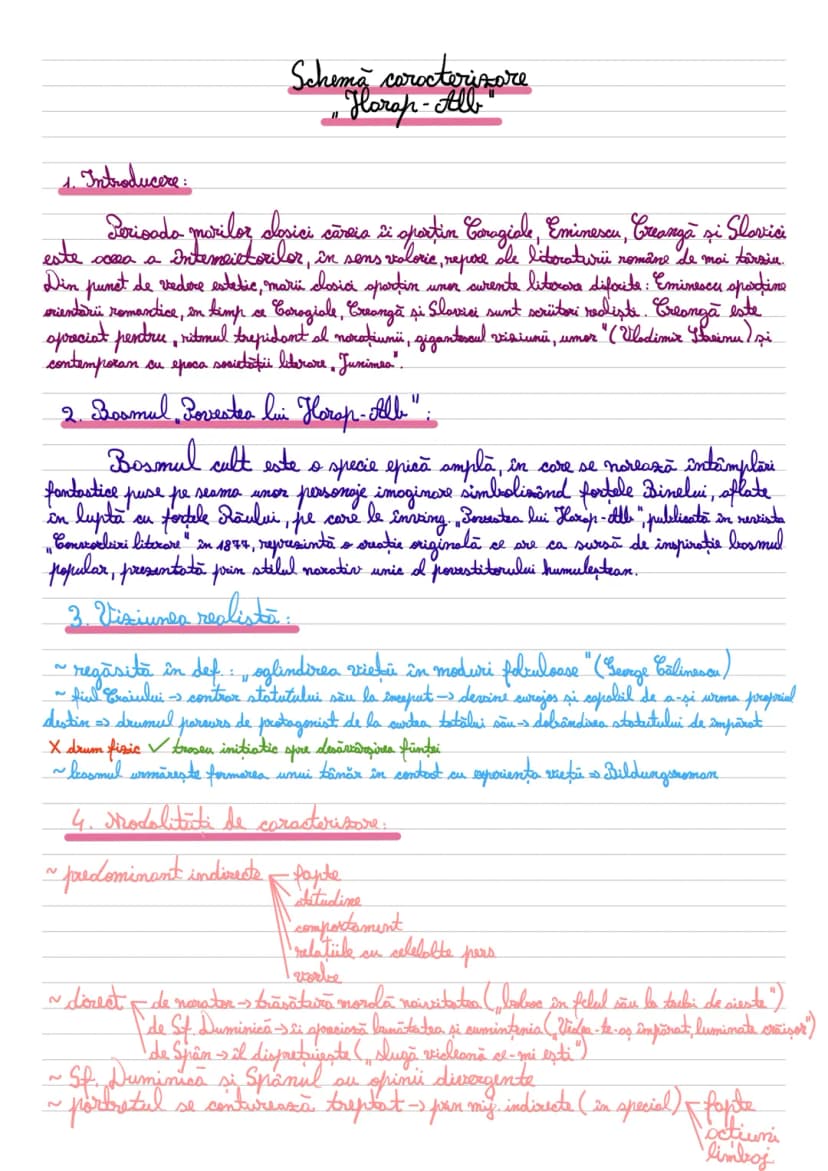 Schemă caracterizare
„Harap-Alb"
1. Introducere:
Perioada marilor clasici căreia îi aparțin Caragiale, Eminescu, Creangă și Slavici
este aceea a întemeietorilor, în sens valoric, repere ale literaturii române de mai târziu.
Din punct de vedere estetic, marii clasici aparțin unor curente literare diferite: Eminescu aparține
orientării romantice, în timp ce Caragiale, Creangă și Slavici sunt scriitori realiști. Creangă este
apreciat pentru „ritmul trepidant al narațiunii, gigantescul viziunii, umor" (Vladimir Streinu) și
contemporan cu epoca societății literare „Junimea".
2. Basmul „Povestea lui Harap-Alb":
Basmul cult este o specie epică amplă, în care se norează întâmplări
fantastice puse pe seama unor personaje imaginare simbolizând forțele Binelui, aflate
în luptă cu forțele Răului, pe care le înving. „Povestea lui Harap-Alb", publicată în revista
„Convorbiri literare" în 1877, reprezintă o creație originală ce are ca sursă de inspirație basmul
popular, prezentată prin stilul narativ unic al povestitorului humuleștean.
3. Viziunea realistă:
~ regăsită în def.: „oglindirea vieții în moduri fabuloase" (George Călinescu)
~ fiul Craiului → contrar statutului său la început → devine curajos și capabil de a-și urma propriul
destin ⇒ drumul parcurs de protagonist de la curtea tatălui său → dobândirea statutului de împărat
X drum fizic ✓ traseu inițiatic spre desăvârșirea ființei
~ basmul urmărește formarea unui tânăr în contact cu experiența vieții ⇒ Bildungsroman
4. Modalități de caracterizare:
~ predominant indirecte fapte
atitudine
comportament
relațiile cu celelalte pers
vorbe
~ direct de narator → trăsătură morală naivitatea („boboc în felul său la trebi de aieste")
de Sf. Duminică → îi apreciază bunătatea și cumințenia („Vedea-te-aș împărat, luminate crăișor")
de Spân → îl disprețuiește („slugă vicleană ce-mi ești")
~ Sf. Duminică și Spânul au opinii divergente
~ portretul se conturează treptat → prin mij. indirecte (în special) fapte
acțiuni
limbaj